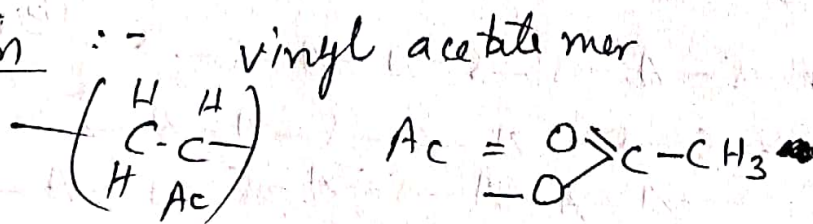 n :- vinyl acetate mer
H H
C-C
H Ac
Ac = O=C-CH3
-O